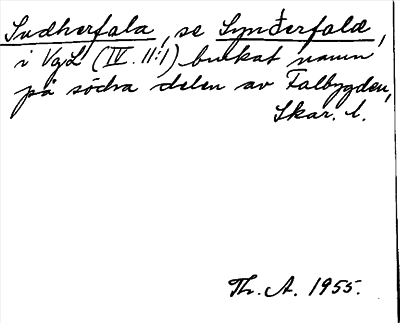 Sudherfala, se Synđerfalæ,
i VgL (IV. 11:1) brukat namn
på södra delen av Falbygden,
Skar. l.
Th. A. 1955.